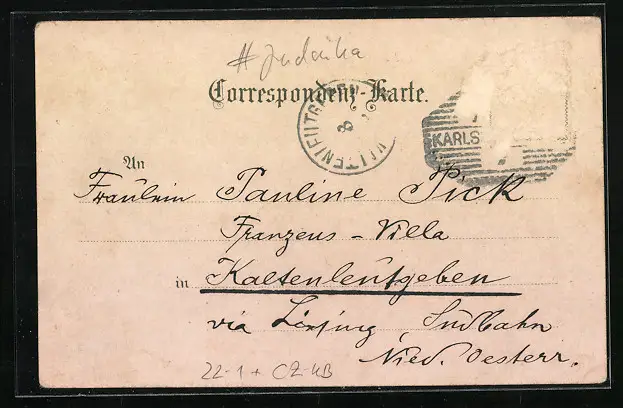 #Judaika
Correspondenz-Karte.
KALTENLEUTGEBEN
8
KARLS
An
Fräulein Pauline Pick
Franzens-Villa
in Kaltenleutgeben
via Liesing, Südbahn
Nied. Oesterr.
22-1+ CZ-KB